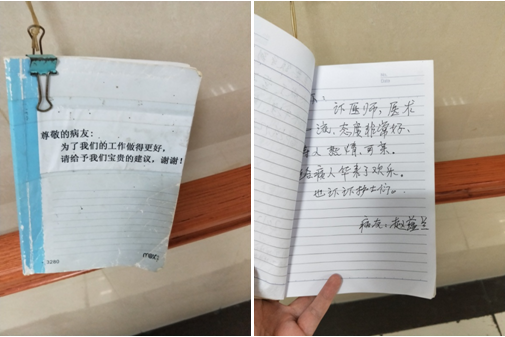 尊敬的病友：
为了我们的工作做得更好，
请给予我们宝贵的建议，谢谢！
3280
医师，医术
态度非常好，
人热情、可亲。
病人带来了欢乐。
也 护士们。
病友：赵